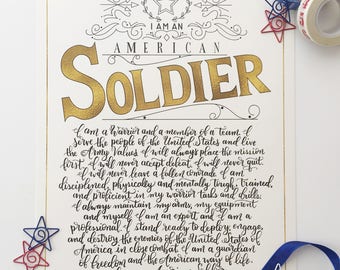 I AM AN
AMERICAN
SOLDIER
I am a warrior and a member of a team. I
serve the people of the United States and live
the Army Values. I will always place the mission
first. I will never accept defeat. I will never quit.
I will never leave a fallen comrade. I am
disciplined, physically and mentally tough, trained,
and proficient in my warrior tasks and drills.
I always maintain my arms, my equipment
and myself. I am an expert and I am a
professional. I stand ready to deploy, engage,
and destroy the enemies of the United States of
America in close combat. I am a guardian
of freedom and the American way of life.